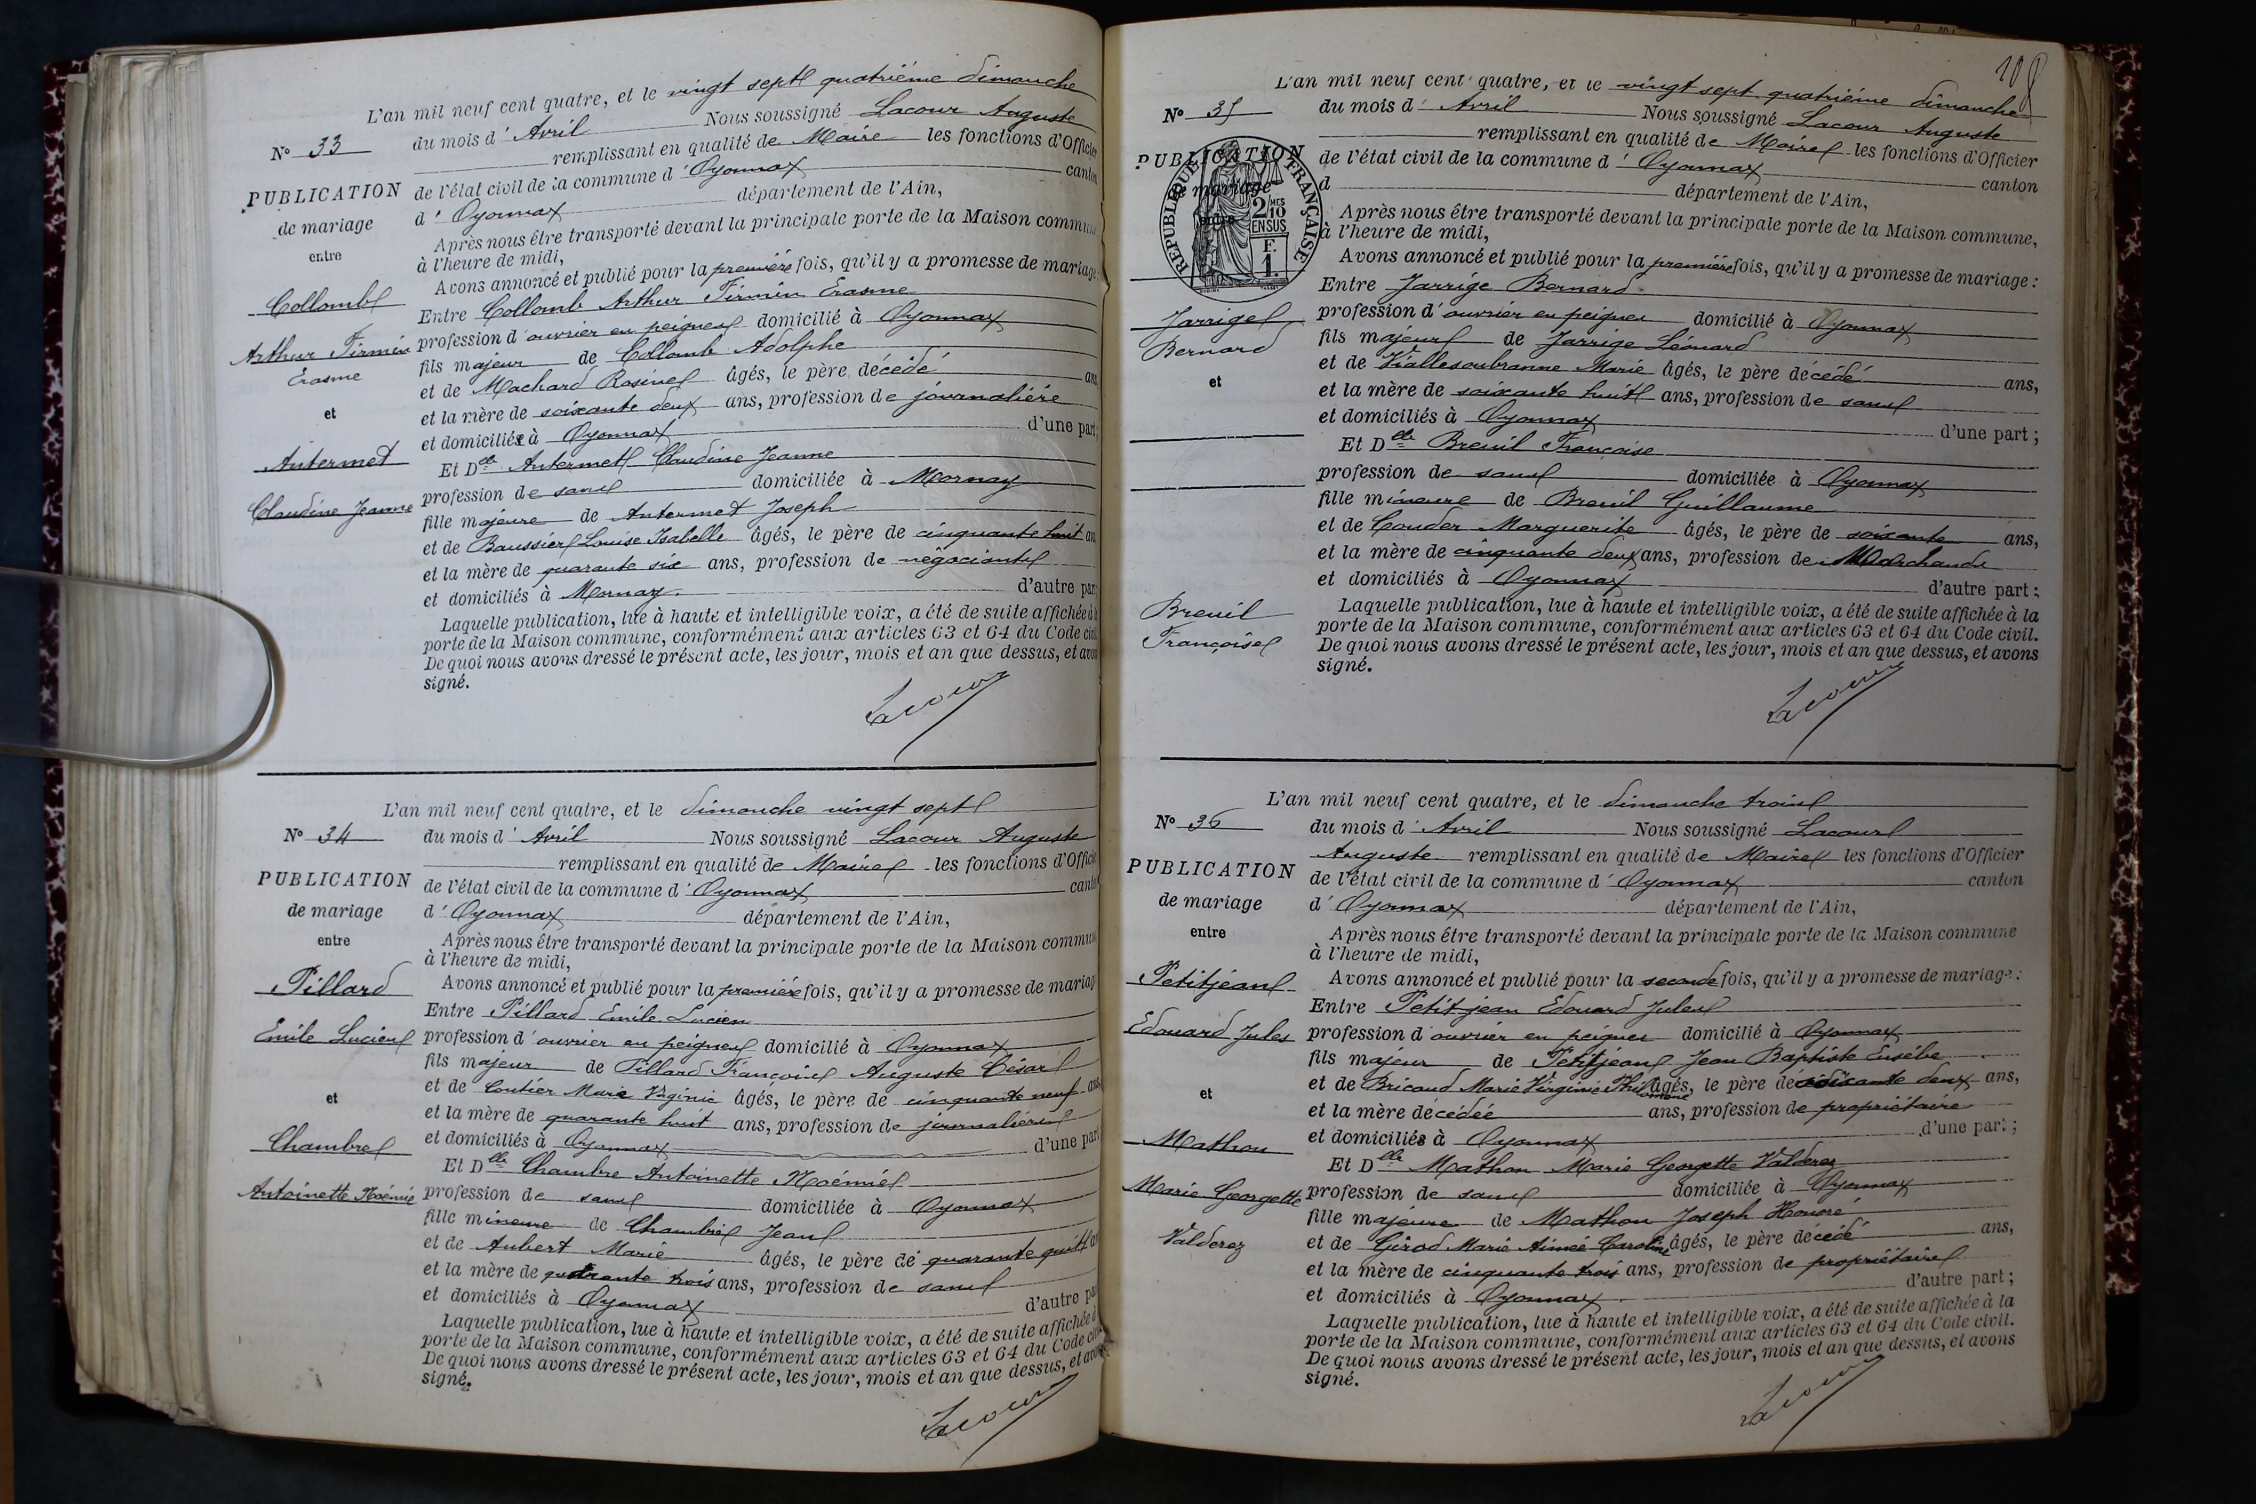 L'an mil neuf cent quatre, et le vingt sept quatrième dimanche
N° 33
du mois d' Avril Nous soussigné Lacour Auguste
remplissant en qualité de Maire les fonctions d'Officier
PUBLICATION
de mariage
entre
de l'état civil de la commune d' Oyonnax canton
d' Oyonnax département de l'Ain,
Après nous être transporté devant la principale porte de la Maison commune
à l'heure de midi,
Avons annoncé et publié pour la première fois, qu'il y a promesse de mariage:
Collomb
Arthur Firmin
Erasme
et
Antermet
Claudine Jeanne
Entre Collomb Arthur Firmin Erasme
profession d' ouvrier en peignes domicilié à Oyonnax
fils majeur de Collomb Adolphe
et de Machard Rosine âgés, le père décédé ans,
et la mère de soixante deux ans, profession de journalière
et domiciliée à Oyonnax d'une part;
Et Dlle Antermet Claudine Jeanne
profession de sans domiciliée à Mornay
fille majeure de Antermet Joseph
et de Baussier Louise Isabelle âgés, le père de cinquante huit ans
et la mère de quarante six ans, profession de négociants
et domiciliés à Mornay. d'autre part;
Laquelle publication, lue à haute et intelligible voix, a été de suite affichée à la
porte de la Maison commune, conformément aux articles 63 et 64 du Code civil.
De quoi nous avons dressé le présent acte, les jour, mois et an que dessus, et avons
signé.
Lacour
L'an mil neuf cent quatre, et le dimanche vingt sept
N° 34
du mois d' Avril Nous soussigné Lacour Auguste
remplissant en qualité de Maire les fonctions d'Officier
PUBLICATION
de mariage
entre
de l'état civil de la commune d' Oyonnax canton
d' Oyonnax département de l'Ain,
Après nous être transporté devant la principale porte de la Maison commune
à l'heure de midi,
Avons annoncé et publié pour la première fois, qu'il y a promesse de mariage
Pillard
Emile Lucien
et
Chambre
Antoinette Noémie
Entre Pillard Emile Lucien
profession d' ouvrier en peignes domicilié à Oyonnax
fils majeur de Pillard François Auguste César
et de Coutier Marie Virginie âgés, le père de cinquante neuf ans
et la mère de quarante huit ans, profession de journalière
et domiciliés à Oyonnax d'une part
Et Dlle Chambre Antoinette Noémie
profession de sans domiciliée à Oyonnax
fille mineure de Chambre Jean
et de Aubert Marie âgés, le père de quarante
et la mère de quarante trois ans, profession de sans
et domiciliés à Oyonnax d'autre part
Laquelle publication, lue à haute et intelligible voix, a été de suite affichée à
porte de la Maison commune, conformément aux articles 63 et 64 du Code civil
De quoi nous avons dressé le présent acte, les jour, mois et an que dessus, et avons
signé.
Lacour
108
L'an mil neuf cent quatre, et le vingt sept quatrième dimanche
N° 35
du mois d' Avril Nous soussigné Lacour Auguste
remplissant en qualité de Maire les fonctions d'Officier
PUBLICATION
de mariage
entre
REPUBLIQUE FRANÇAISE
2/10 MES
EN SUS
F.
1.
de l'état civil de la commune d' Oyonnax canton
d département de l'Ain,
Après nous être transporté devant la principale porte de la Maison commune,
à l'heure de midi,
Avons annoncé et publié pour la première fois, qu'il y a promesse de mariage:
Jarrige
Bernard
et
Breuil
Françoise
Entre Jarrige Bernard
profession d' ouvrier en peignes domicilié à Oyonnax
fils majeur de Jarrige Léonard
et de Viallesoubranne Marie âgés, le père décédé ans,
et la mère de soixante huit ans, profession de sans
et domiciliés à Oyonnax d'une part;
Et Dlle Breuil Françoise
profession de sans domiciliée à Oyonnax
fille mineure de Breuil Guillaume
et de Couder Marguerite âgés, le père de soixante ans,
et la mère de cinquante deux ans, profession de Marchands
et domiciliés à Oyonnax d'autre part:
Laquelle publication, lue à haute et intelligible voix, a été de suite affichée à la
porte de la Maison commune, conformément aux articles 63 et 64 du Code civil.
De quoi nous avons dressé le présent acte, les jour, mois et an que dessus, et avons
signé.
Lacour
L'an mil neuf cent quatre, et le dimanche trois
N° 36
du mois d' Avril Nous soussigné Lacour
Auguste remplissant en qualité de Maire les fonctions d'Officier
PUBLICATION
de mariage
entre
de l'état civil de la commune d' Oyonnax canton
d' Oyonnax département de l'Ain,
Après nous être transporté devant la principale porte de la Maison commune
à l'heure de midi,
Avons annoncé et publié pour la seconde fois, qu'il y a promesse de mariage:
Petitjean
Edouard Jules
et
Mathon
Marie Georgette
Valderez
Entre Petitjean Edouard Jules
profession d' ouvrier en peignes domicilié à Oyonnax
fils majeur de Petitjean Jean Baptiste Eusèbe
et de Bricaud Marie Virginie Philomène âgés, le père de soixante deux ans,
et la mère décédée ans, profession de propriétaire
et domiciliés à Oyonnax d'une part;
Et Dlle Mathon Marie Georgette Valderez
profession de sans domiciliée à Oyonnax
fille majeure de Mathon Joseph Honoré
et de Girod Marie Aimée Caroline âgés, le père décédé ans,
et la mère de cinquante trois ans, profession de propriétaire
et domiciliés à Oyonnax. d'autre part;
Laquelle publication, lue à haute et intelligible voix, a été de suite affichée à la
porte de la Maison commune, conformément aux articles 63 et 64 du Code civil.
De quoi nous avons dressé le présent acte, les jour, mois et an que dessus, et avons
signé.
Lacour